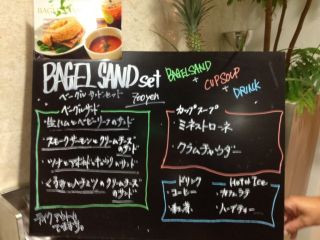 BAGEL SAND set
ベーグルサンドセット
700yen
BAGELSAND
+
CUPSOUP
+
DRINK
ベーグルサンド
・生ハムとベビーリーフのサンド
・スモークサーモンとクリームチーズのサンド
・ツナとアボカドのサンド
・くるみとハチミツのクリームチーズのサンド
カップスープ
・ミネストローネ
・クラムチャウダー
ドリンク Hot or Ice
・コーヒー ・カフェラテ
・紅茶 ・ハーブティー
テイクアウトも